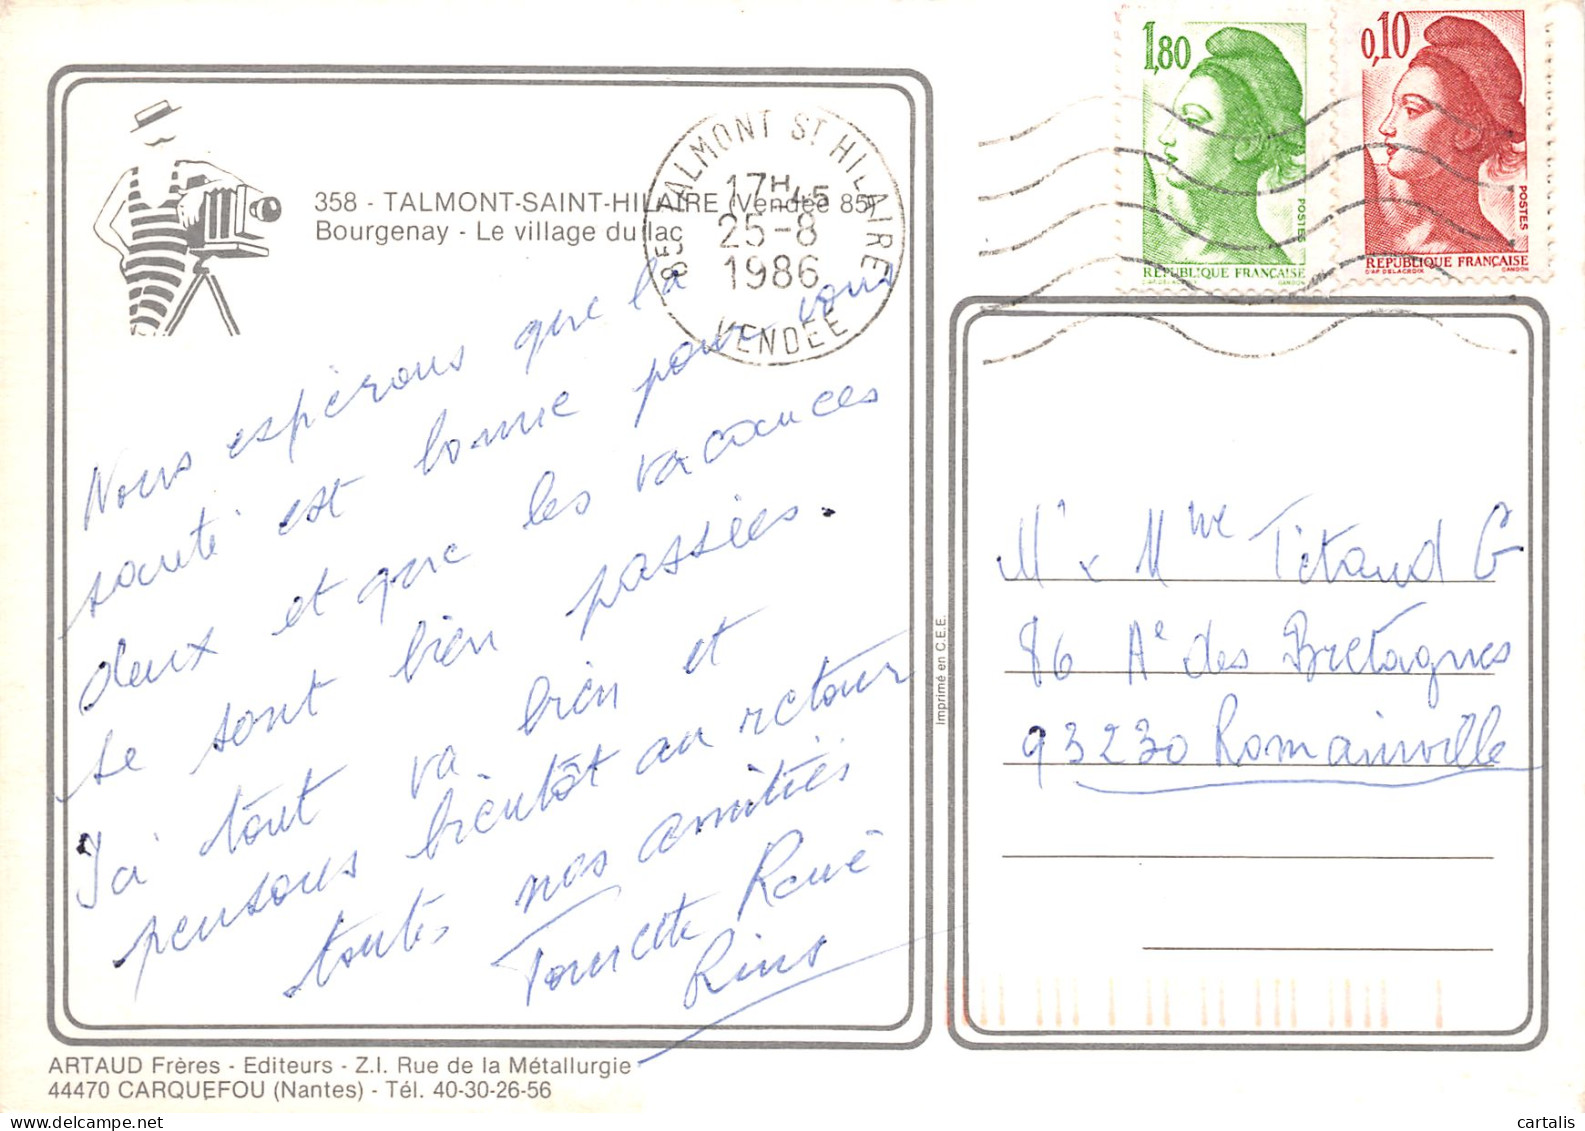 358 - TALMONT-SAINT-HILAIRE (Vendée 85)
Bourgenay - Le village du lac
85 TALMONT ST HILAIRE
17H45
25-8
1986
VENDÉE
1,80
POSTES
RÉPUBLIQUE FRANÇAISE
D'AP. DELACROIX GANDON
0,10
POSTES
RÉPUBLIQUE FRANÇAISE
D'AP. DELACROIX GANDON
Nous espérons que la
santé est bonne pour vous
deux et que les vacances
se sont bien passées.
Ici tout va bien et
pensons bientôt au retour
toutes nos amitiés
René
Imprimé en C.E.E.
Mr & Mme Tétaud G
86 Ae des Bretagnes
93230 Romainville
ARTAUD Frères - Editeurs - Z.I. Rue de la Métallurgie
44470 CARQUEFOU (Nantes) - Tél. 40-30-26-56
cartalis